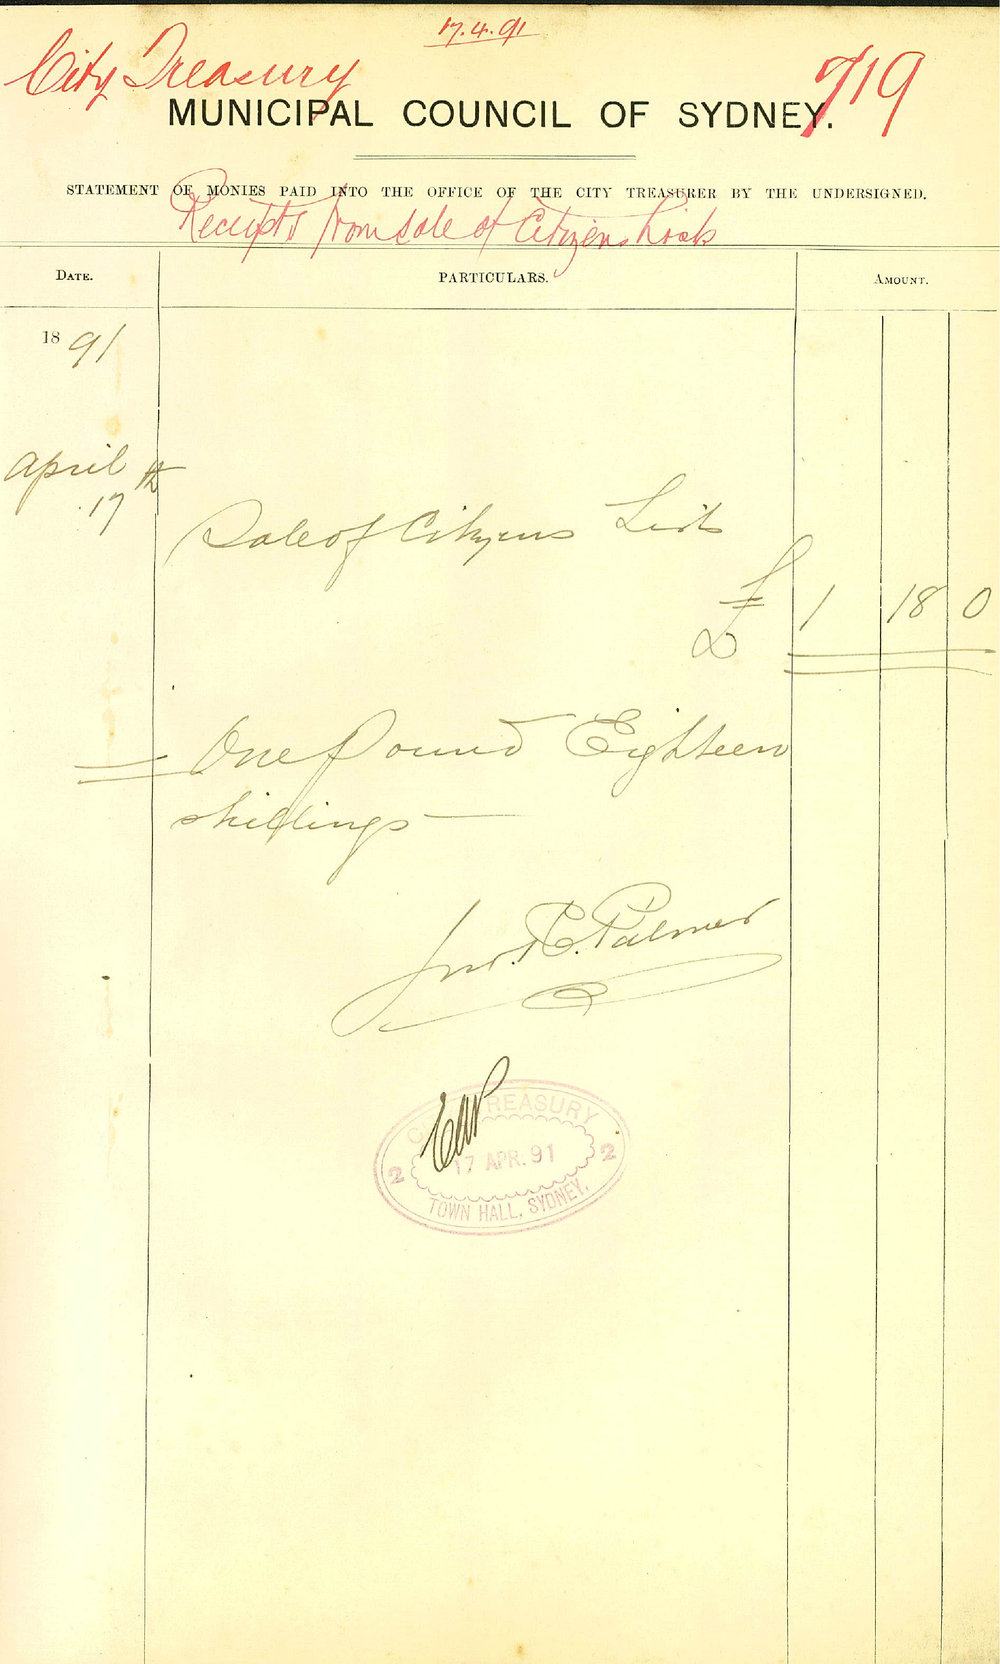 17.4.91
City Treasury
719
MUNICIPAL COUNCIL OF SYDNEY.
STATEMENT OF MONIES PAID INTO THE OFFICE OF THE CITY TREASURER BY THE UNDERSIGNED.
Receipts from sale of Citizens Lists
DATE. PARTICULARS. AMOUNT.
1891
April 17th
Sale of Citizens Lists
£ 1 18 0
One Pound Eighteen
shillings
Jno. R. C. Palmer
CITY TREASURY
2 17 APR. 91 2
TOWN HALL, SYDNEY.